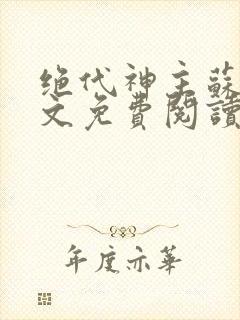 绝代神主蘇
文免費閱讀
年度亦華